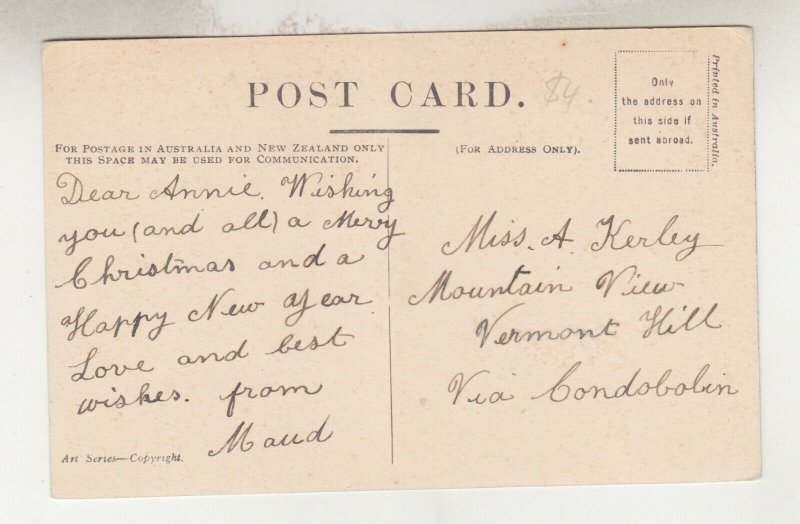 POST CARD.
$4
Only
the address on
this side if
sent abroad.
Printed in Australia.
FOR POSTAGE IN AUSTRALIA AND NEW ZEALAND ONLY
THIS SPACE MAY BE USED FOR COMMUNICATION.
(FOR ADDRESS ONLY).
Dear Annie. Wishing
you (and all) a Merry
Christmas and a
Happy New Year
Love and best
wishes. from
Maud
Art Series—Copyright.
Miss. A. Kerley
Mountain View
Vermont Hill
Via Condobolin